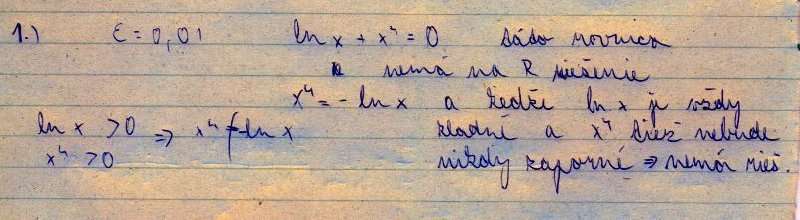 1.) ε = 0,01 ln x + x⁴ = 0 táto rovnica
nemá na R riešenie
x⁴ = - ln x a keďže ln x je vždy
ln x > 0 ⇒ x⁴ ≠ -ln x kladné a x⁴ tiež nebude
x⁴ > 0 nikdy záporné ⇒ nemá rieš.